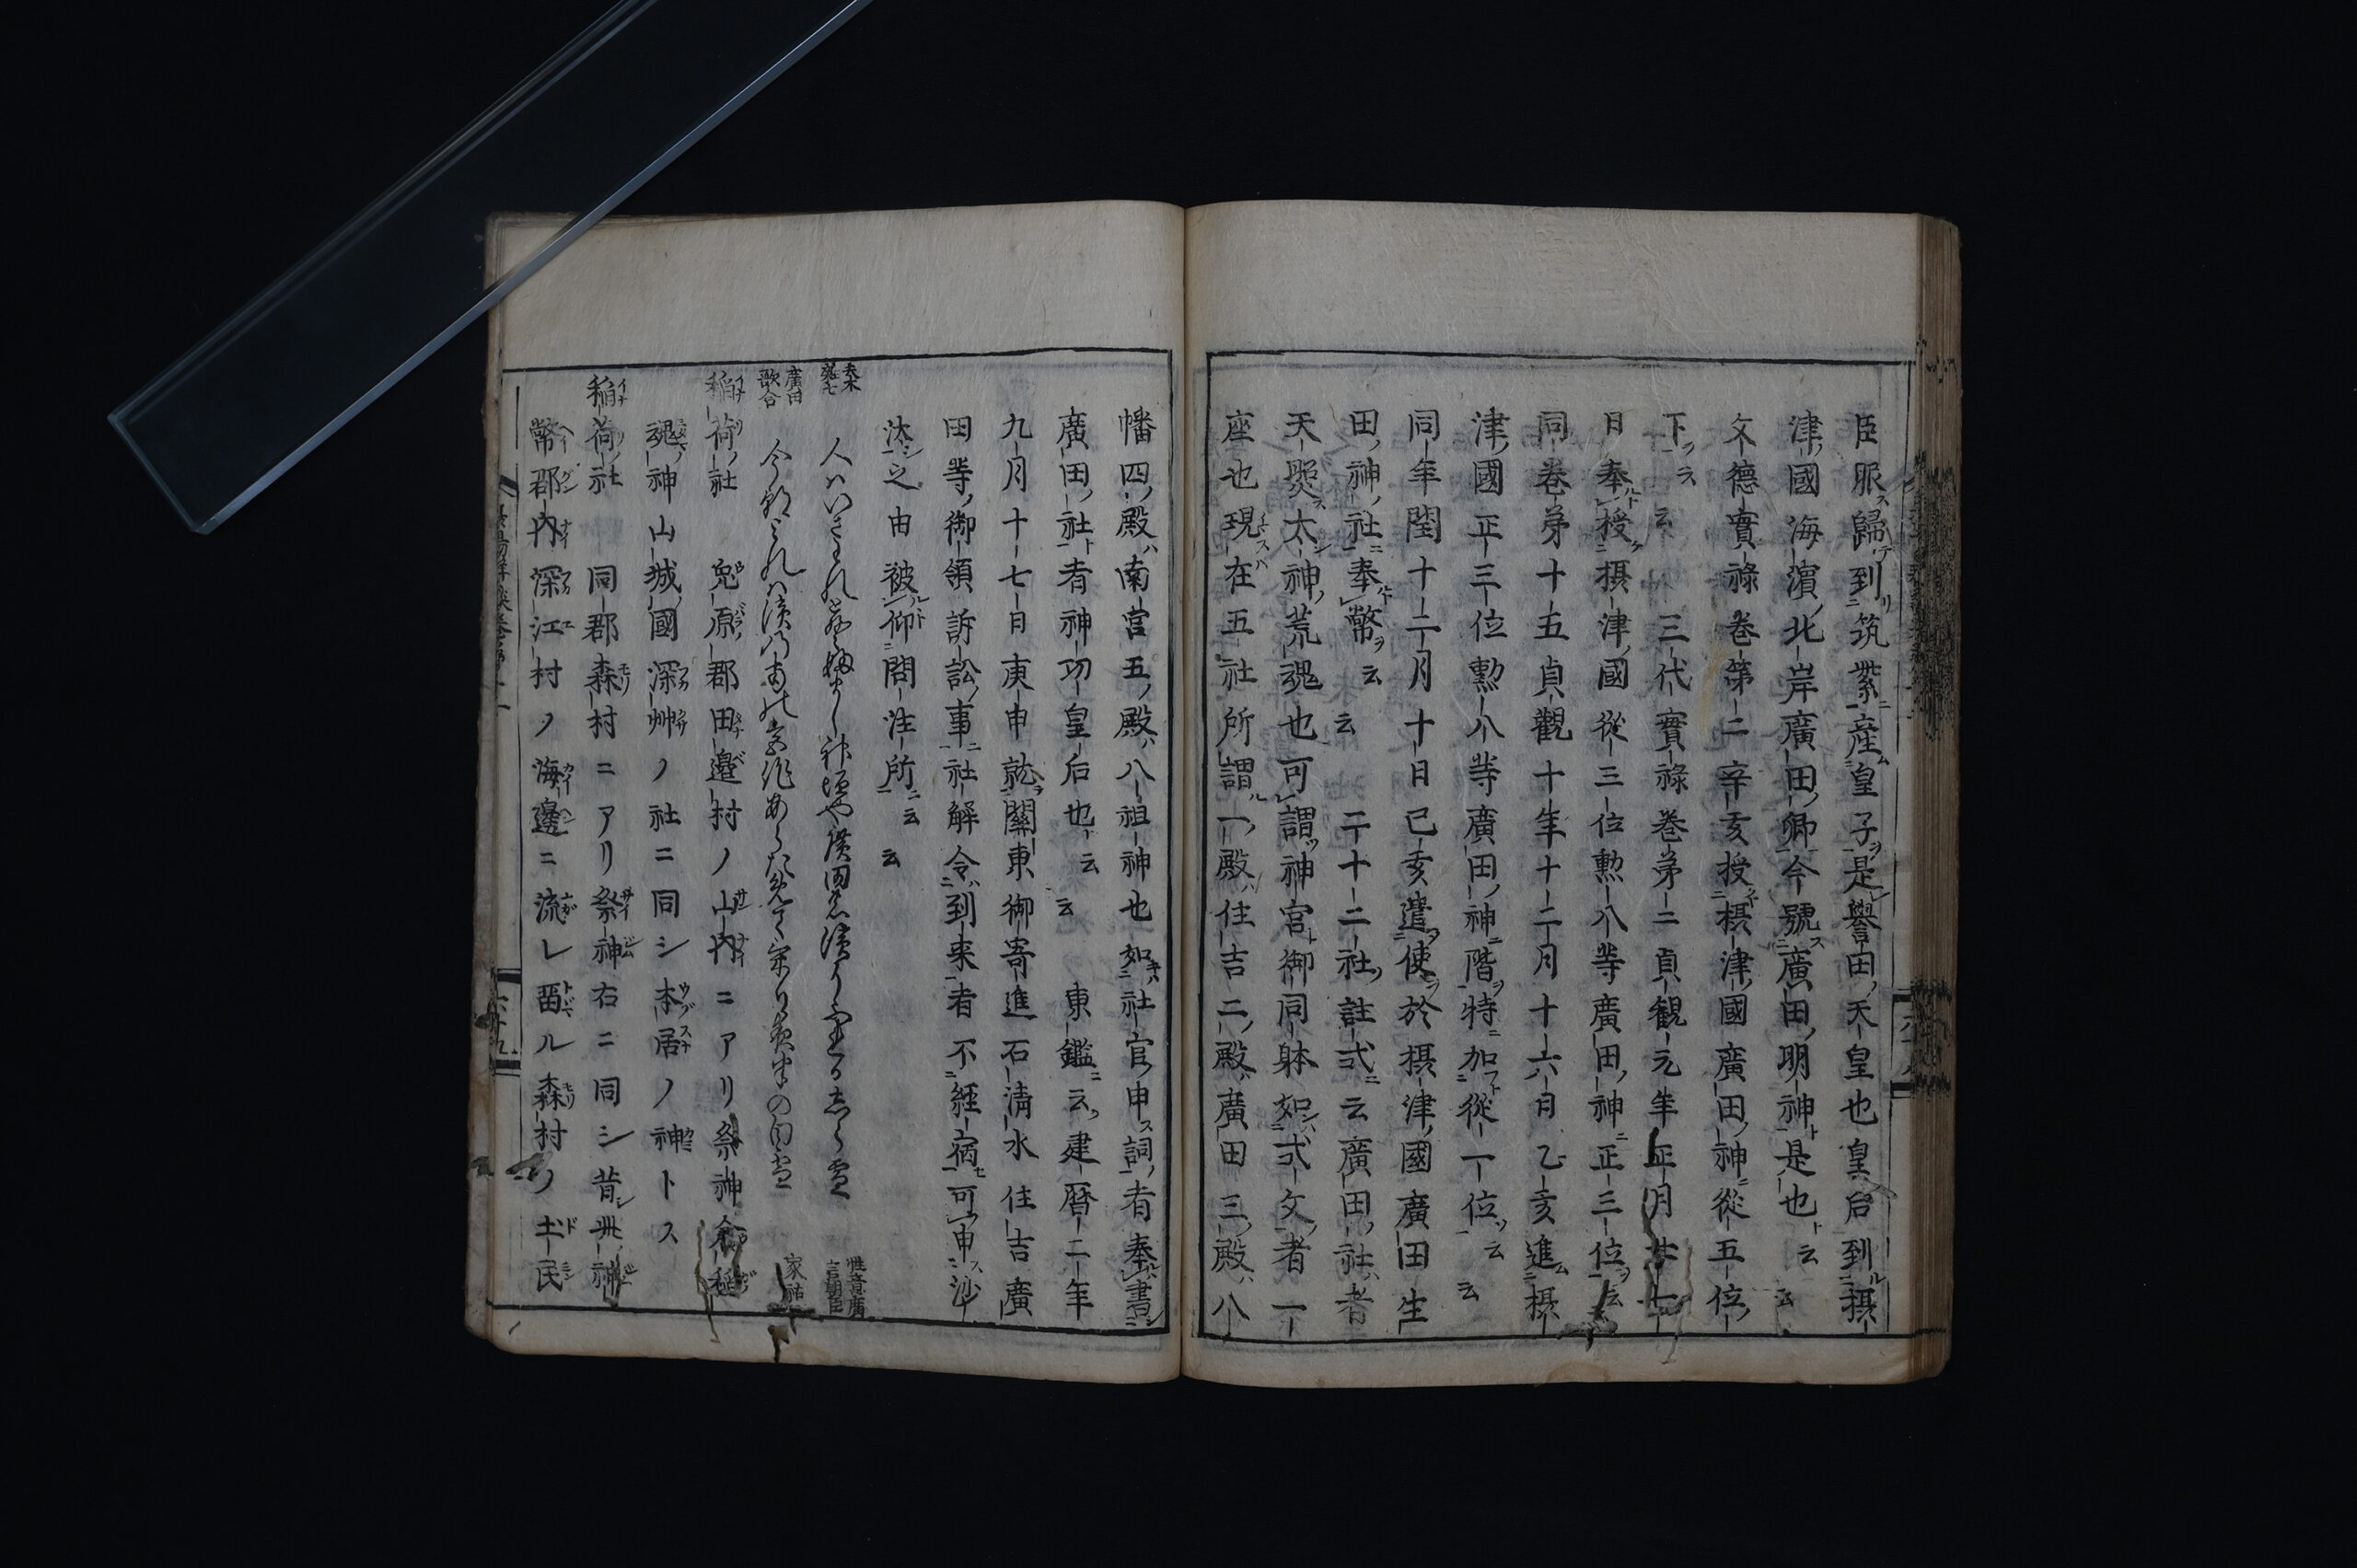 臣服歸到筑紫産皇子是譽田天皇也皇后到摂
津國海濵北岸廣田郷今號廣田明神是也云云
文德實祿卷第二辛亥授摂津國廣田神從五位
下云云三代實祿卷第二貞観元年正月廿七
日奉授摂津國從三位勲八等廣田神正三位云云
同卷第十五貞觀十年十二月十六日乙亥進摂
津國正三位勲八等廣田神階特加從一位云云
同年閏十二月十日己亥遣使於摂津國廣田生
田神社奉幣云云二十二社註式云廣田社者
天照太神荒魂也可謂神宮御同躰如式文者一
座也現在五社所謂一殿住吉二殿廣田三殿八
幡四殿南宮五殿八祖神也如社官申詞者奉書
廣田社者神功皇后也云云東鑑云建暦二年
九月十七日庚申就關東御寄進石清水住吉廣
田等御領訴訟事社解令到来者不經宿可申沙
汰之由被仰問注所云云
夫木
廣田歌合
家祐
稲荷社 兎原郡田邉村ノ山内ニアリ祭神倉稲
魂神山城國深艸ノ社ニ同シ本居ノ神トス
稲荷社 同郡森村ニアリ祭神右ニ同シ昔
幣郡内深江村ノ海邊ニ流レ留ル森村ノ土民